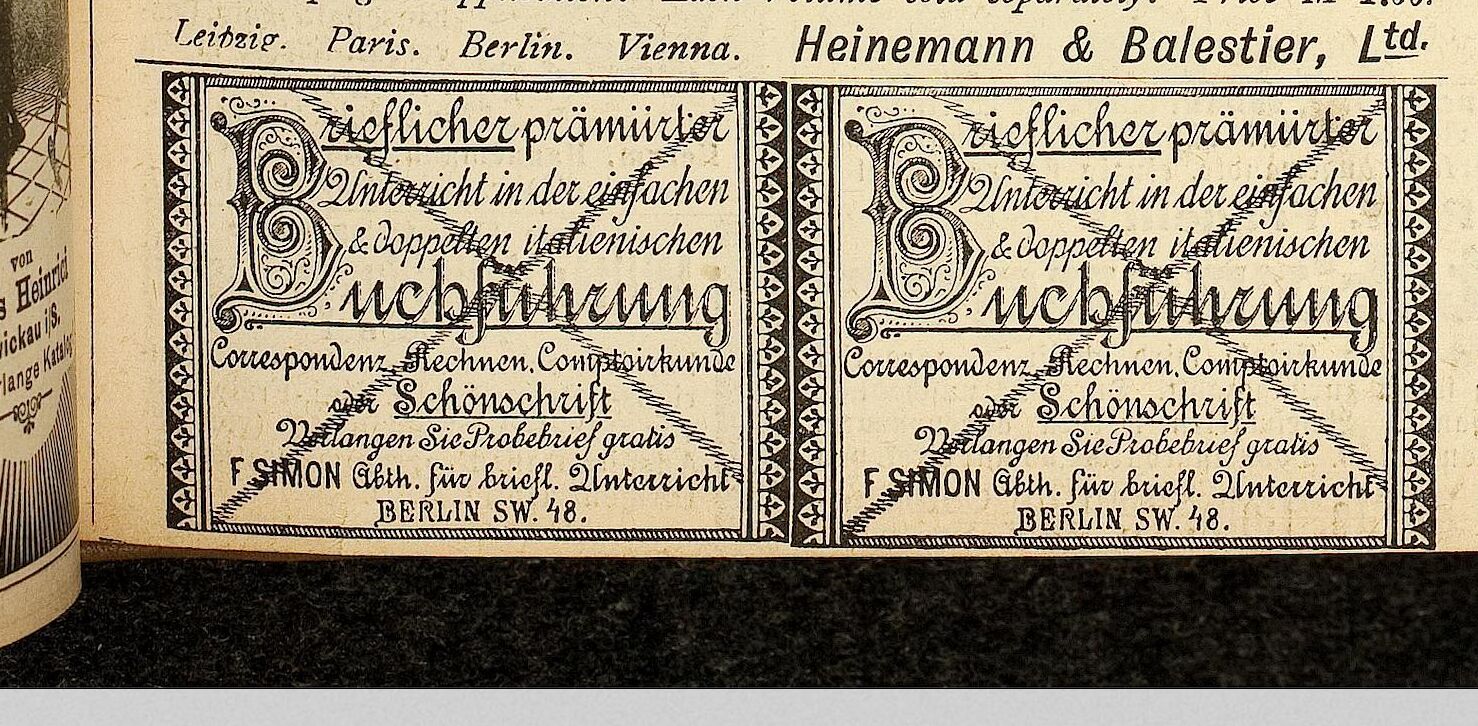 Each volume sold separately. Price M 1.60.
Leipzig. Paris. Berlin. Vienna. Heinemann & Balestier, Ltd.
Brieflicher prämiirter
Unterricht in der einfachen
& doppelten italienischen
Buchführung
Correspondenz, Rechnen, Comptoirkunde
oder Schönschrift
Verlangen Sie Probebrief gratis
F SIMON Abth. für briefl. Unterricht
BERLIN SW. 48.
Brieflicher prämiirter
Unterricht in der einfachen
& doppelten italienischen
Buchführung
Correspondenz, Rechnen, Comptoirkunde
oder Schönschrift
Verlangen Sie Probebrief gratis
F SIMON Abth. für briefl. Unterricht
BERLIN SW. 48.
von
Heinrici
wickau i/S.
rlange Katalog